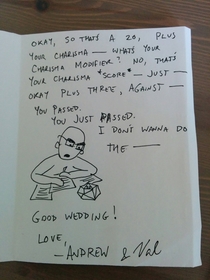 OKAY, SO THAT'S A 20, PLUS
YOUR CHARISMA — WHAT'S YOUR
CHARISMA MODIFIER? NO, THAT'S
YOUR CHARISMA *SCORE* — JUST —
OKAY PLUS THREE, AGAINST —
YOU PASSED.
YOU JUST PASSED.
I DON'T WANNA DO
THE —
GOOD WEDDING!
LOVE,
— ANDREW & Val